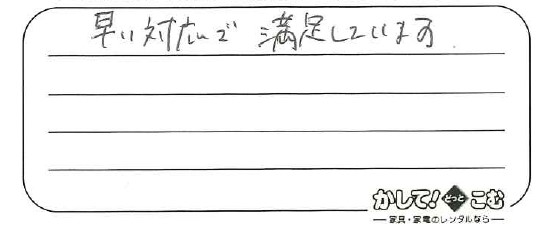 早い対応で 満足しています
かして!どっとこむ
家具・家電のレンタルなら